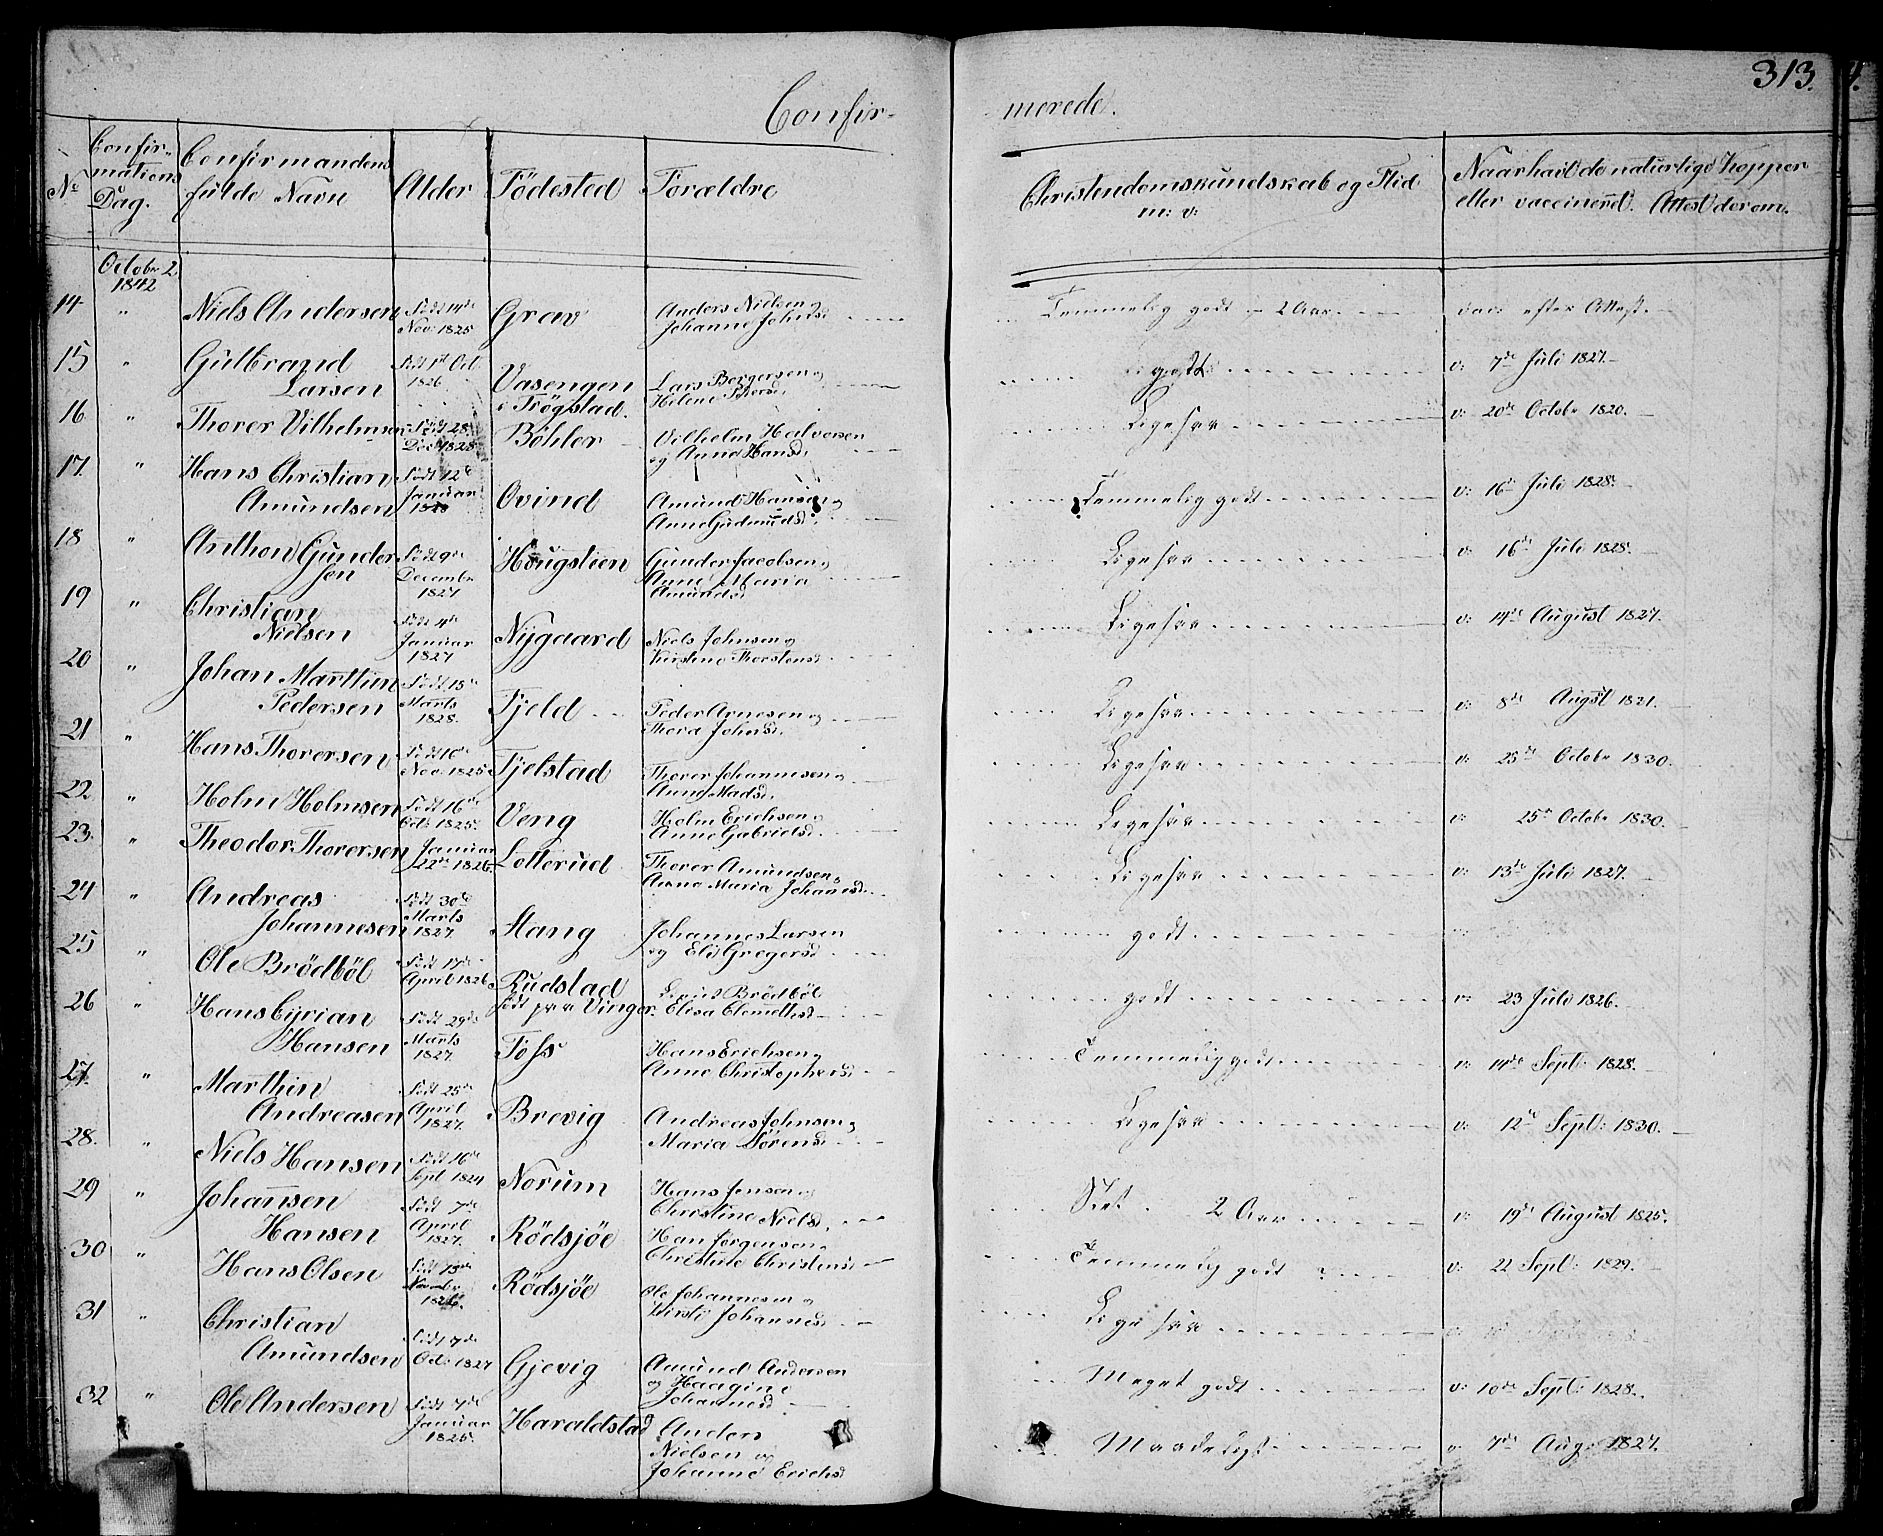 313.
Confir- merede.
No
Confir-
mations
Dag.
Confirmandens
fulde Navn
Alder
Födested
Forældre
Christendomskundskab og Flid
m: v:
Naar havt de naturlige Kopper
eller vaccinerd. Attest derom.
Octobr 2
1842
14 " Niels Andersen Födt 14de Nov: 1825 Grav Anders Nielsen og Johanne Johnsd. Temmelig godt 2 Aar. vacc efter Attest.
15 " Gulbrand Larsen Födt 1st Oct 1826. Vasengen i Trögstad. Lars Borgersen og Helene godt v: 7de Juli 1827.
16 " Thorer Vilhelmsen Födt 28. Dec 1828 Böhler Vilhelm Halvorsen og Anne Hansd. Ligesaa v: 20de Octobr 1820.
17. " Hans Christian Amundsen Födt 12te Januar Ovind Amund Hansen og Anne Gudmundsd. Temmelig godt v: 16de Juli 1828.
18 " Anthon Gundersen Födt 9de Decembr 1827 Hougstien Gunder Jacobsen og Anne Maria Amundsd. Ligesaa v: 16de Juli 1828.
19 " Christian Nielsen Födt 4de Januar 1827 Nÿgaard Niels Johnsen og Kirstine Thorstensd. Ligesaa v: 14de August 1827.
20 " Johan Marthin Pedersen Födt 15de Marts 1828. Fjeld Peder Arnesen og Thora Johnsd. Ligesaa v: 8de Augst 1821.
21 " Hans Thorersen Födt 10de Nov: 1825 Fjelstad Thorer Johannesen og Anne Madsd. Ligesaa v: 25de Octobr 1830.
22 " Holm Holmsen Födt 16de Oct: 1825. Veng Holm Erichsen og Anne Gabrielsd. Ligesaa v: 25de Octobr 1830.
23. " Theodor Thorersen Januar 22de 1826. Lotterud Thorer Amundsen og Anne Maria Johannsd. Ligesaa v: 13de Juli 1827.
24 " Andreas Johannesen Födt 30de Marts 1827. Stang Johannes Larsen og Elis Gregersd. godt v:
25 " Ole Brödböl Födt 17de April 1826. Rudstad födt paa Vinger. Brödböl Elisa Clemetsd godt v: 23 Juli 1826.
26 " Hans Cÿrian Hansen Födt 29de Marts 1827. Foss Hans Erichsen og Anne Christophersd Temmelig godt v: 14de Septb: 1828.
27. " Marthin Andreasen Födt 25de April 1827. Brevig Andreas Johnsen og Maria Sörensd Ligesaa v: 12te Septb: 1830.
28. " Niels Hansen Födt 16de Sept 1824 Norum Hans Jensen og Christine Nielsd. 2 Aar v: 19de August 1825.
29 " Johannsen Hansen Födt 7de April 1827. Rödsjöe Han Jörgensen og Christine Christensd Temmelig godt v: 22 Septb: 1829.
30 " Hans Olsen Födt 13de Novembr Rödsjöe Ole Johannesen og Kirsti Johannesd Ligesaa v:
31 " Christian Amundsen Födt 7de Oct: 1827 Gjevig Amund Andersen og Haagine Johannesd Meget godt v: 10de Septb: 1828.
32 " Ole Andersen Födt 7de Januar 1825. Haraldstad Anders Nielsen og Johanne Erichsd Maadeligt v: 7de Aug: 1827.